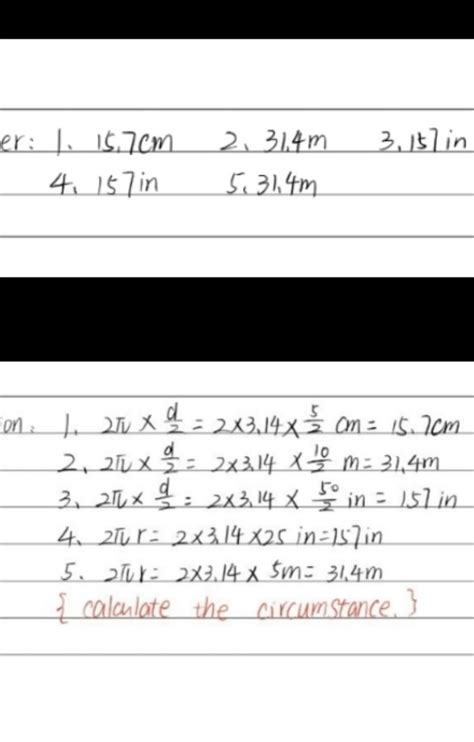 er: 1、15.7cm 2、31.4m 3、157in
4、157in 5、31.4m
on: 1、2π × d/2 = 2×3.14× 5/2 cm = 15.7cm
2、2π × d/2 = 2×3.14 × 10/2 m = 31.4m
3、2π × d/2 = 2×3.14 × 50/2 in = 157in
4、2πr = 2×3.14×25 in=157in
5、2πr= 2×3.14× 5m= 31.4m
{ calculate the circumstance. }